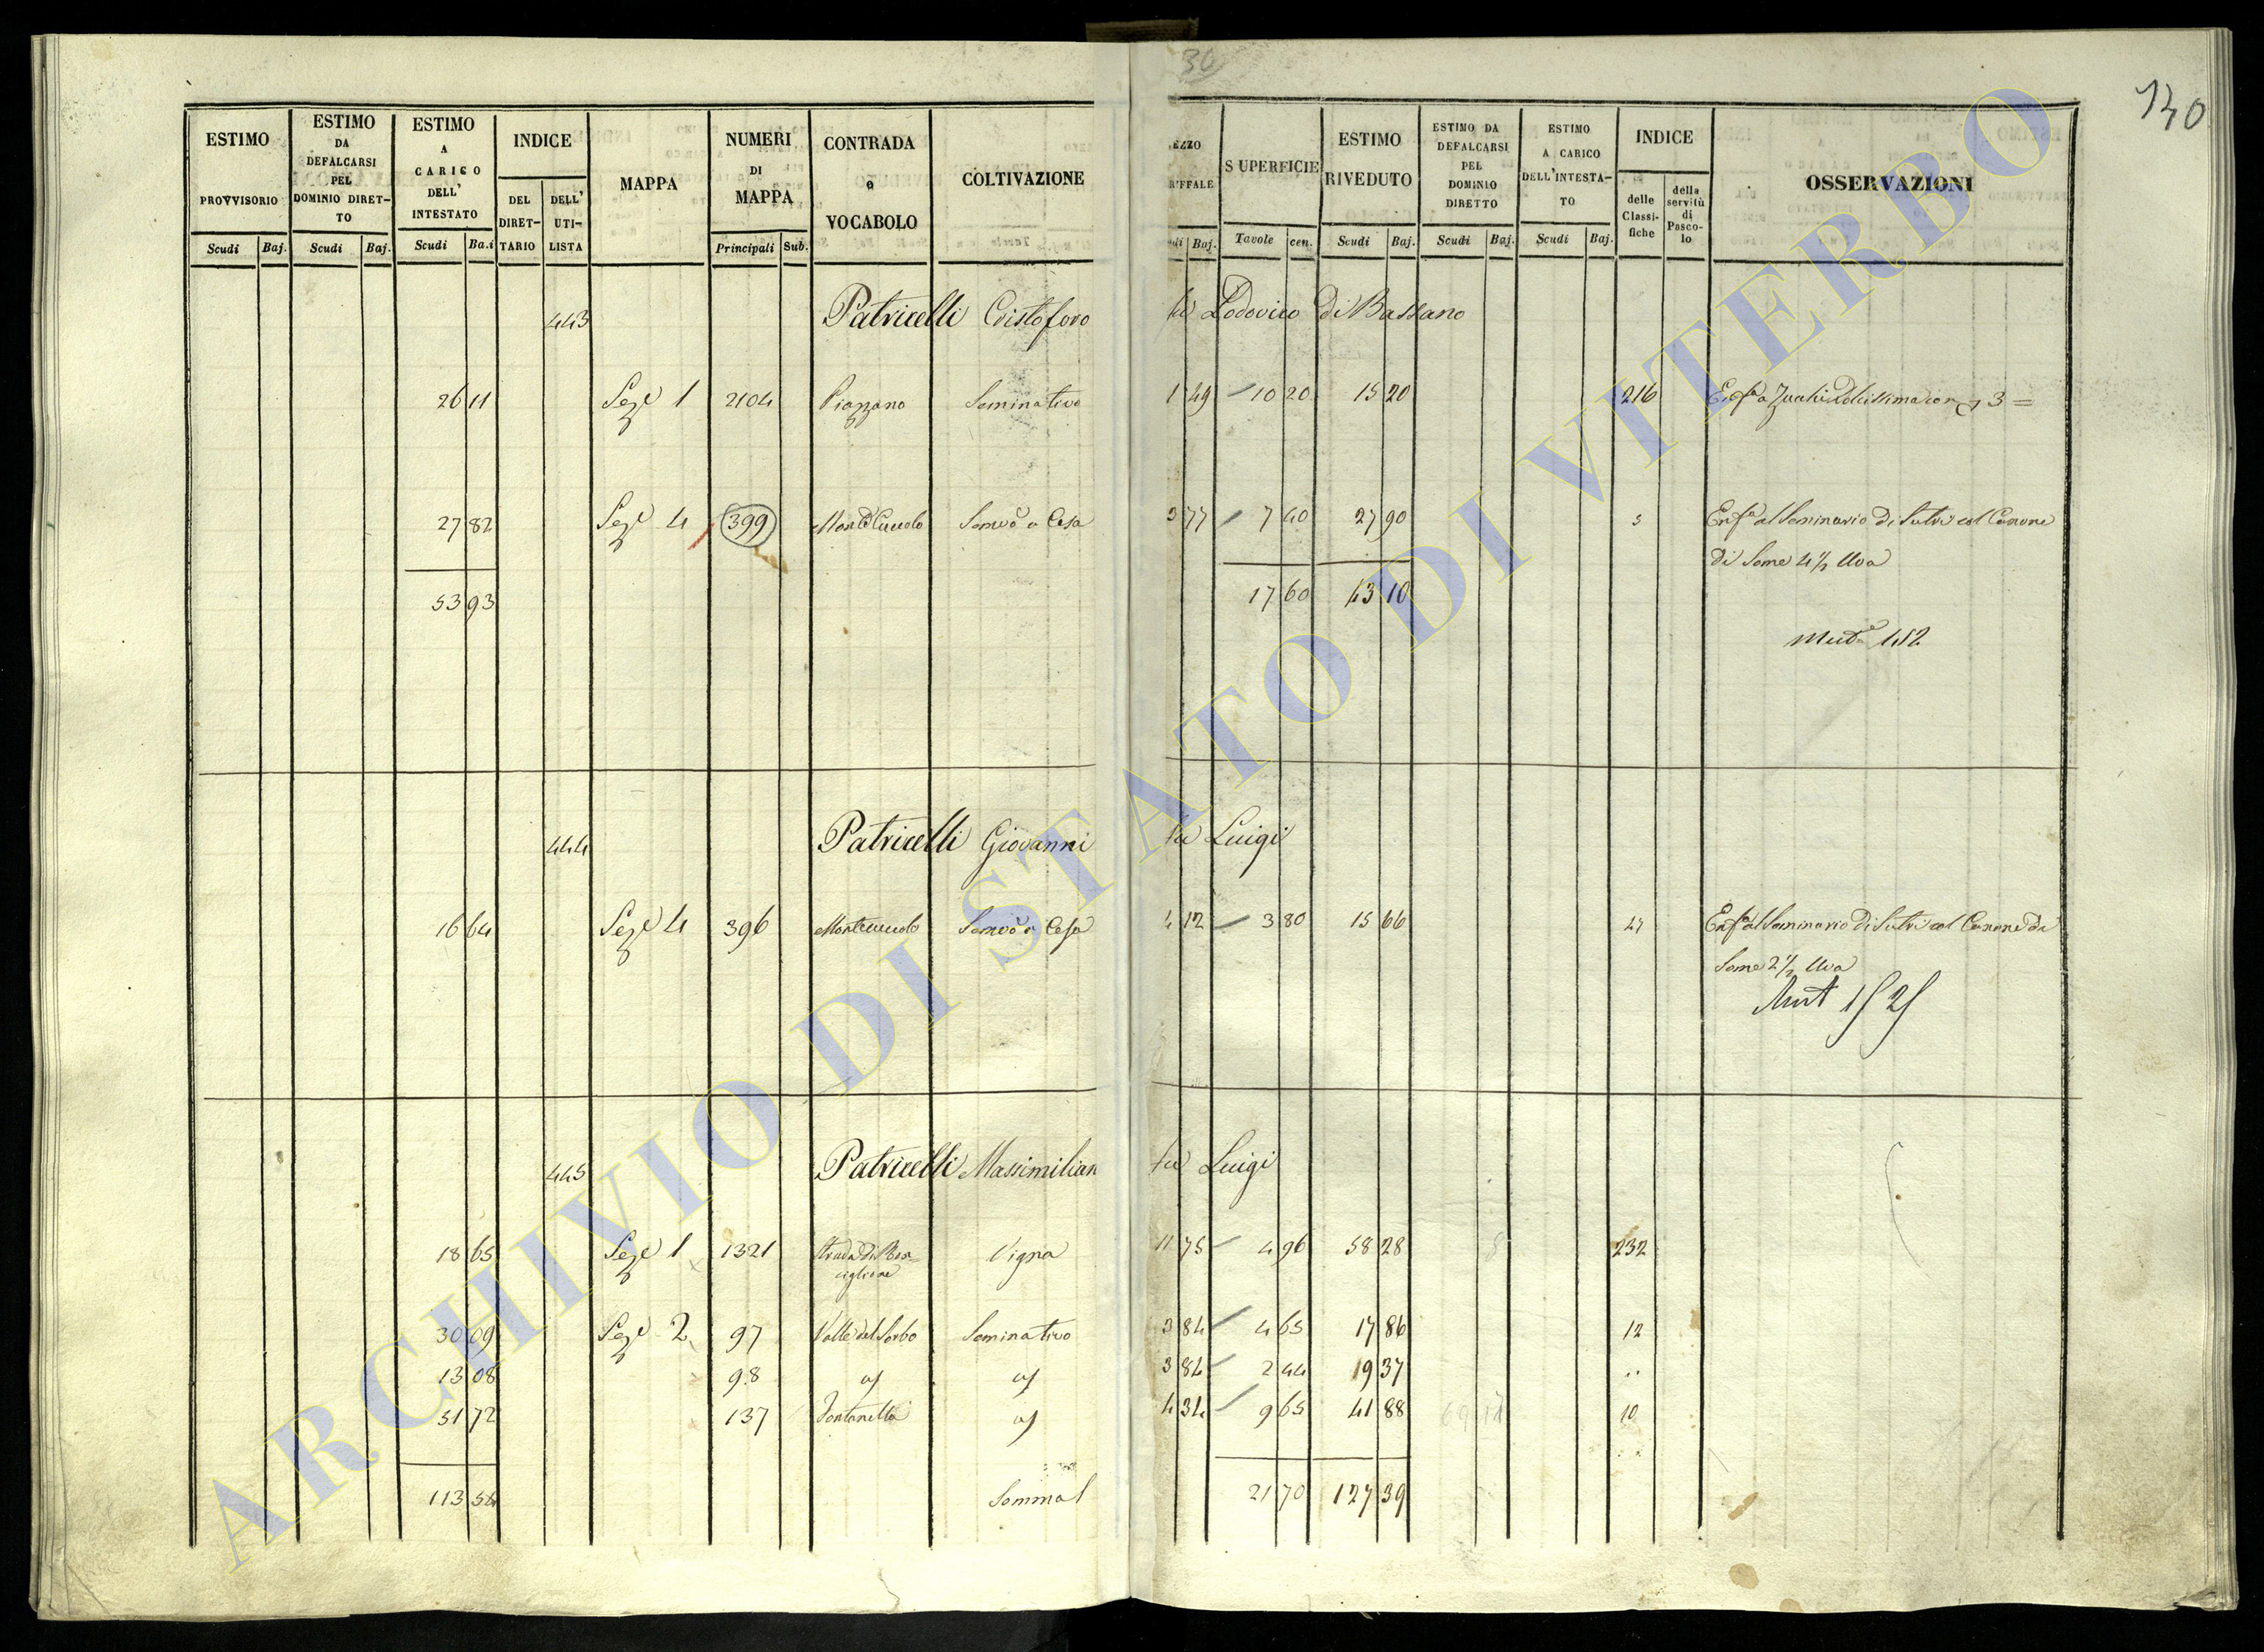 30
130
ESTIMO PROVVISORIO Scudi Baj.
ESTIMO DA DEFALCARSI PEL DOMINIO DIRETTO Scudi Baj.
ESTIMO A CARICO DELL' INTESTATO Scudi Ba.i
INDICE DEL DIRET-TARIO DELL' UTI-LISTA
MAPPA
NUMERI DI MAPPA Principali Sub.
CONTRADA o VOCABOLO
COLTIVAZIONE
EZZO RIFFALE di Baj.
SUPERFICIE Tavole cen.
ESTIMO RIVEDUTO Scudi Baj.
ESTIMO DA DEFALCARSI PEL DOMINIO DIRETTO Scudi Baj.
ESTIMO A CARICO DELL'INTESTA-TO Scudi Baj.
INDICE delle Classi-fiche della servitù di Pasco-lo
OSSERVAZIONI
443 Patricelli Cristoforo fu Lodovico di Bassano
26 11 Sez.e 1 2104 Piazzano Seminativo 1 49 10 20 15 20 216 Enf.a a 3 =
27 82 Sez.e 4 399 Monte Cucolo Semvo a Casa 3 77 7 40 27 90 5 Enf.a al Seminario di Sutri col Canone
di Some 4 1/2 Uva
53 93 17 60 43 10
Mut.e 152
444 Patricelli Giovanni fu Luigi
16 64 Sez.e 4 396 Montecucolo Semvo a Casa 4 12 3 80 15 66 Enf.a al Seminario di Sutri col Canone di
Some 2 1/2 Uva
Mut
445 Patricelli Massimilian fu Luigi
18 65 Sez.e 1 1321 Strada di Ron-ciglione Vigna 11 75 4 96 58 28 232
30 09 Sez.e 2 97 Valle del Sorbo Seminativo 3 84 4 65 17 86 12
13 08 98 3 84 2 44 19 37 ..
51 72 137 Fontanella 4 34 9 65 41 88 10
113 54 Somma 21 70 127 39
ARCHIVIO DI STATO DI VITERBO